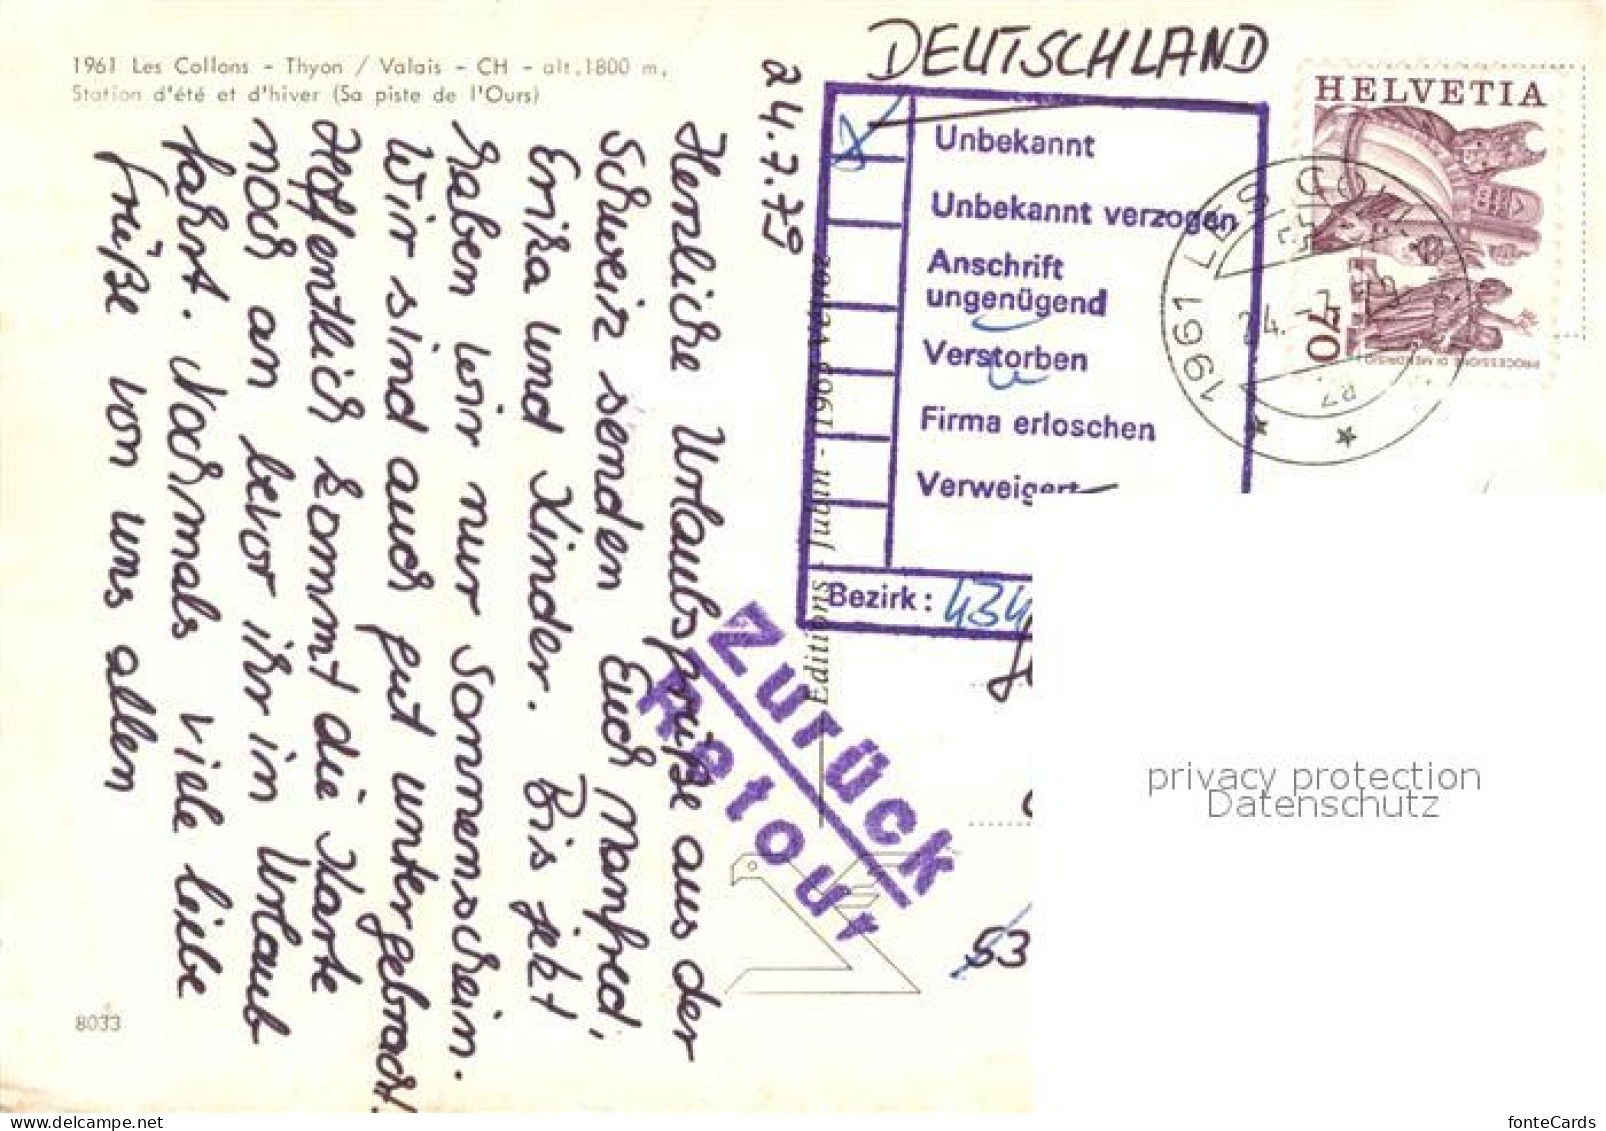 1961 Les Collons - Thyon / Valais - CH - alt. 1800 m,
Station d'été et d'hiver (Sa piste de l'Ours)
24.7.79
Herzliche Urlaubsgrüße aus der
Schweiz senden Euch Manfred,
Erika und Kinder. Bis jetzt
haben wir nur Sonnenschein.
Wir sind auch gut untergebracht.
Hoffentlich kommt die Karte
noch an bevor ihr in Urlaub
fahrt. Nochmals viele liebe
Grüße von uns allen
8033
Editions - Jubin - 1909 Vétroz
DEUTSCHLAND
Unbekannt
Unbekannt verzogen
Anschrift
ungenügend
Verstorben
Firma erloschen
Verweigert
Bezirk: 434
Zurück
Retour
HELVETIA
70
PROCESSIONE DI MENDRISIO
1961 LES COLLONS
24.-7.79
53
privacy protection
Datenschutz
fonteCards